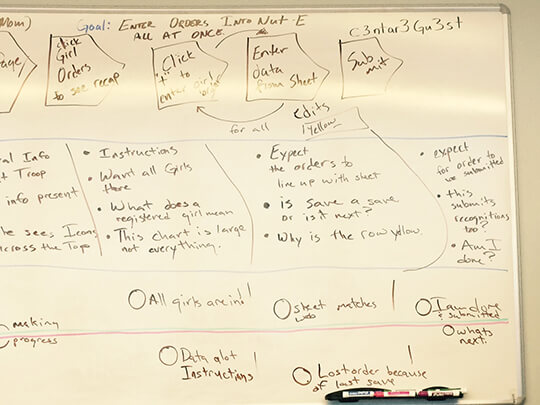 Mom)
Goal: ENTER ORDERS INTO NUT-E
ALL AT ONCE.
c3ntar3Gu3st
age
click
Girl
Orders
to see recap
Click
it to
enter girl
order
Enter
data
from Sheet
Sub
mit
for all
edits
Yellow
al Info
t Troop
info present
he sees Icons
across the Top
• Instructions
• Want all Girls
there
• What does a
registered girl mean
• This chart is large
not everything.
• Expect
the orders to
line up with sheet
• is save a save
or is it next?
• Why is the row yellow.
• expect
for order to
be submitted
• this
submits
recognitions
too?
• Am I
done?
making
progress
All girls are in!
Data a lot
Instructions
sheet matches
web
Lost order because
of last save
I am done
& submitted
whats
next.